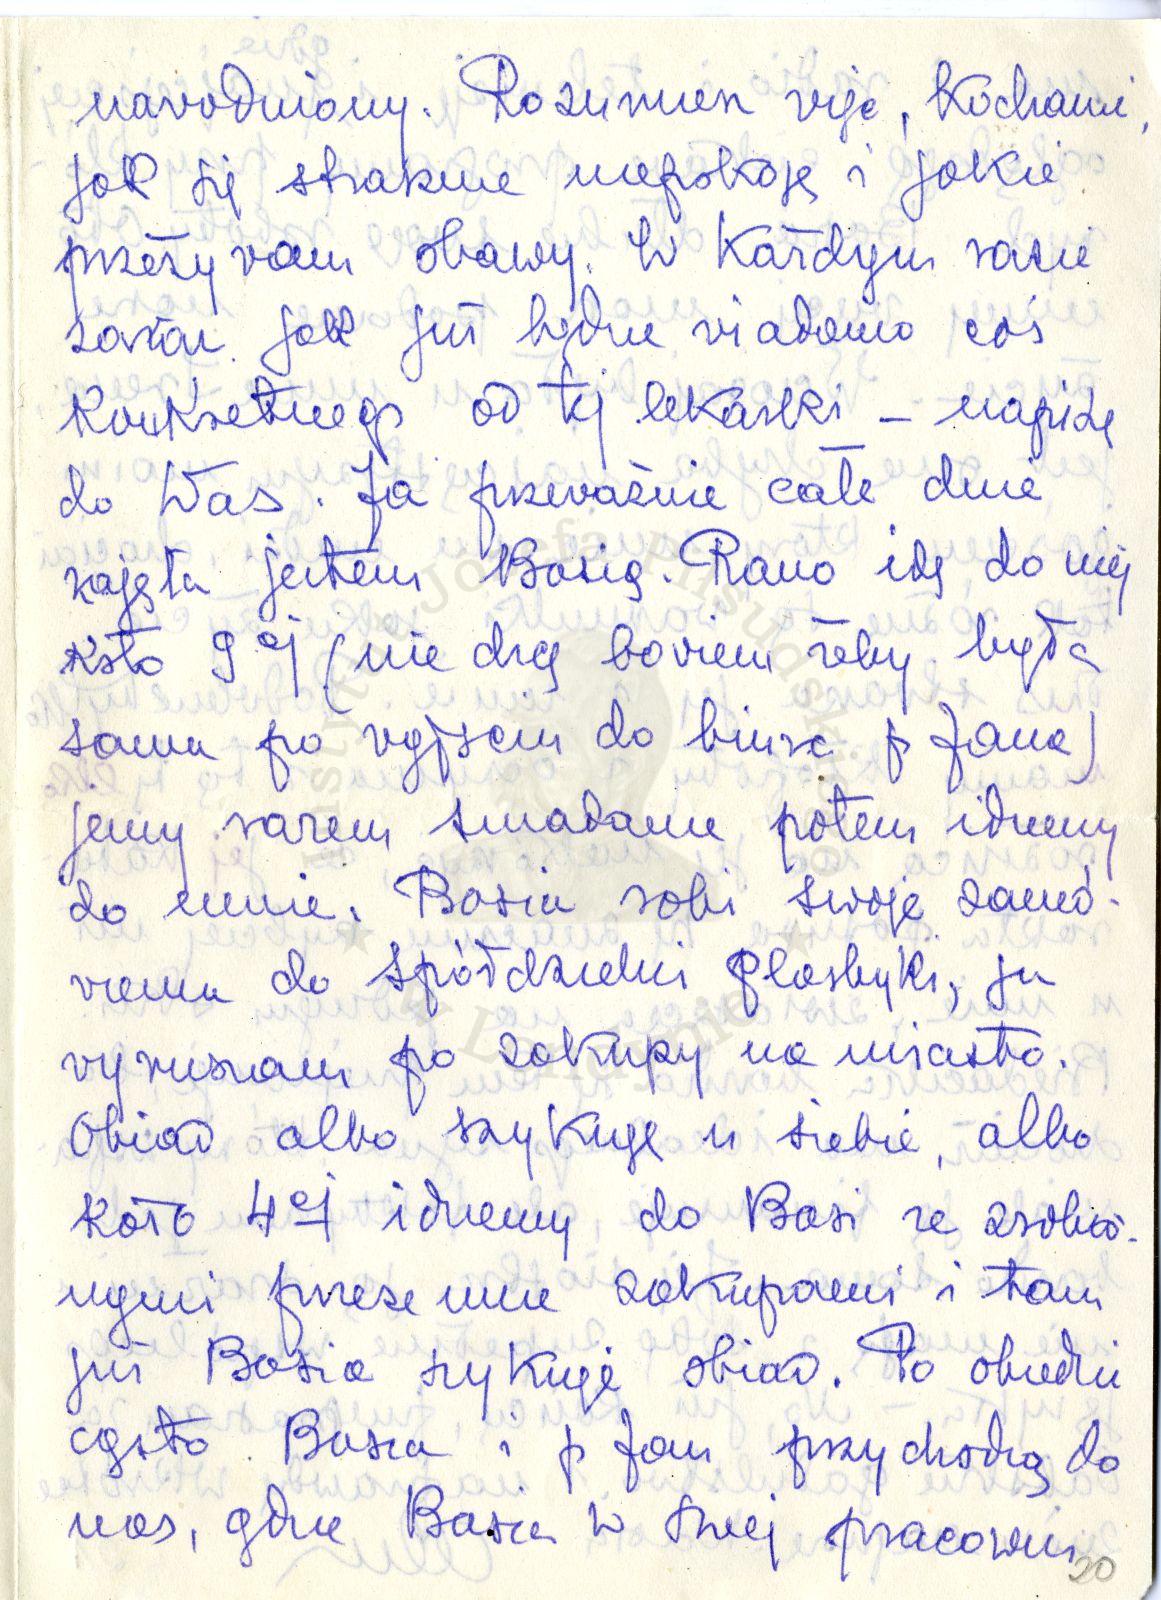 nawodniony. Rozumiesz więc, Kochani,
jak się strasznie niepokoję i jakie
przeżywam obawy. W każdym razie
zaraz jak już będzie wiadomo coś
konkretnego od tej lekarki – napiszę
do Was. Ja przeważnie całe dnie
zajęta jestem Basią. Rano idę do niej
koło 9ej (nie chcę bowiem żeby była
sama po wyjściu do biura p Jana)
jemy razem śniadanie potem idziemy
do mnie. Basia robi swoje zamó-
wienia do Spółdzielni Plastyki, ja
wyruszam po zakupy na miasto.
Obiad albo szykuję u siebie, albo
koło 4ej idziemy do Basi ze zrobio-
nymi przeze mnie zakupami i tam
już Basia szykuje obiad. Po obiedzie
często Basia i p Jan przychodzą do
nas, gdzie Basia w swej pracowni
20
Instytut Józefa Piłsudskiego
w Londynie